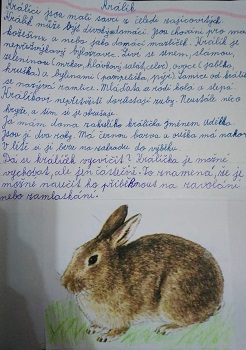 Králík
Králíci jsou malí savci z čeledi zajícovitých.
Králík může být divoký, domácí. Jsou chováni pro maso,
kožešinu a nebo jako domácí mazlíček. Králík je
nepřežvýkavý býložravec. Živí se senem, slamou,
zeleninou (mrkev, hlávkový salát, celer), ovoce (jablka,
hruška) a bylinami (pampeliška, pýr). Samice od králíka
se nazývá ramlice. Mláďata se rodí holá a slepá.
Králíkovi nepřetržitě dorůstají zuby. Neustále něco
hryže, a tím se je obrušuje.
Já mám doma zakrslého králíčka jménem Udélka.
Jsou jí dva roky. Má černou barvu a ouška má nahoru.
V létě si ji beru na zahradu do výběhu.
Dá se králíček vycvičit? Králíčka je možné
vychovat, ale jen částečně. To znamená, že je
možné naučit ho přiběhnout na zavolání
nebo zamlaskání.